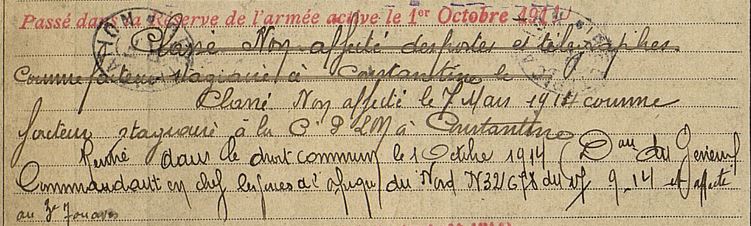 Passé dans la Réserve de l'armée active le 1er Octobre 1911
Classé Non affecté des postes et télégraphes
Comme facteur stagiaire à Constantine le
Classé Non affecté le 7 Mars 1914 comme
facteur stagiaire à la Cie P L M à Constantine
Rentré dans le droit commun le 1 Octobre 1914 (Don du Général
Commandant en chef les forces de l'afrique du Nord N 32678 du 9-14 et affecté
au 3e Zouaves